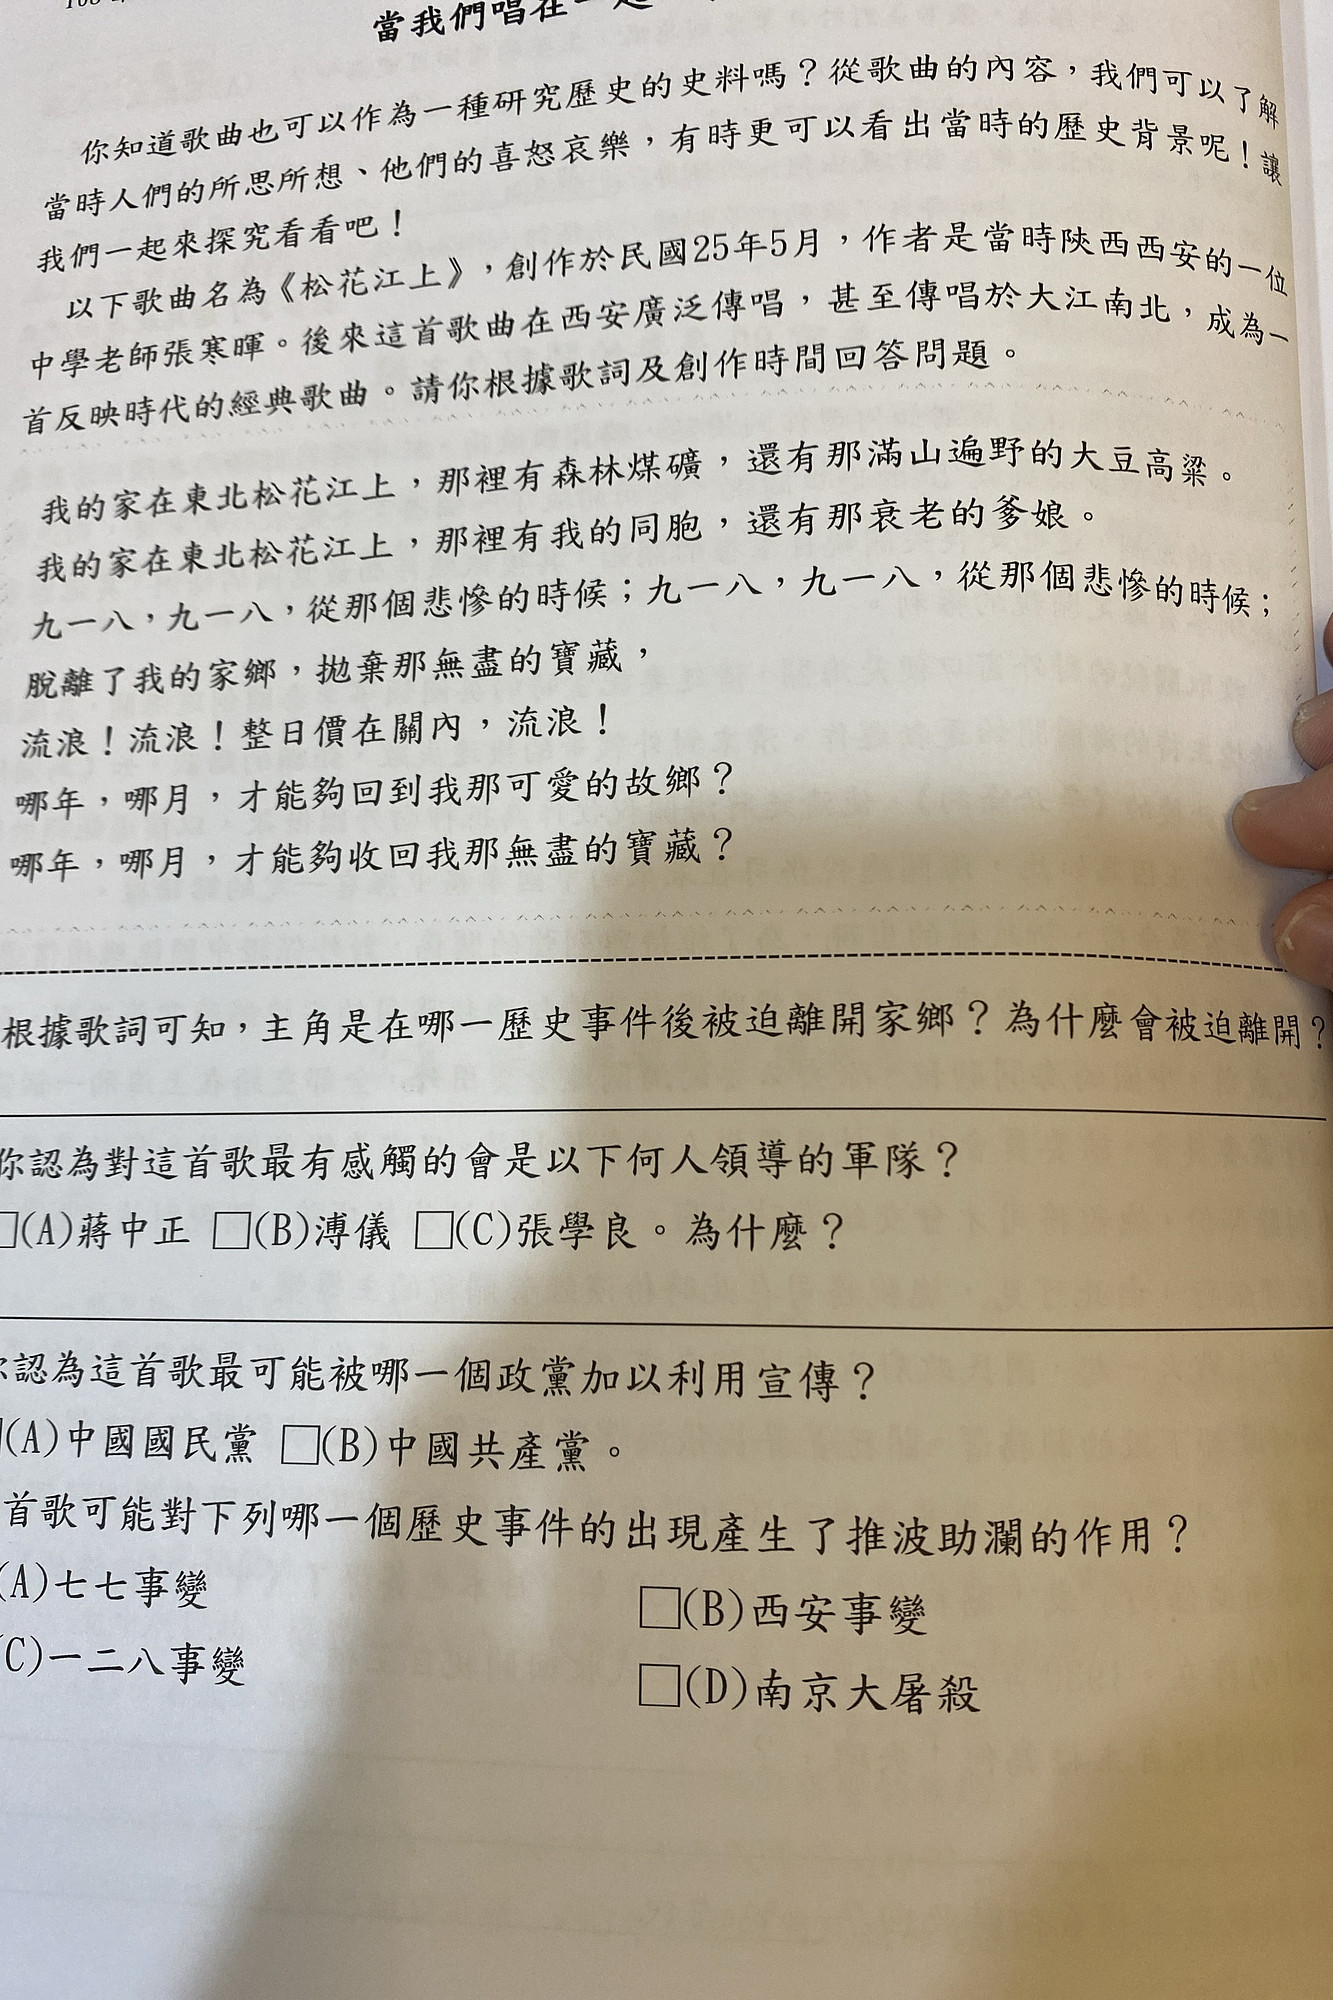 當我們唱在一起
你知道歌曲也可以作為一種研究歷史的史料嗎？從歌曲的內容，我們可以了解
當時人們的所思所想、他們的喜怒哀樂，有時更可以看出當時的歷史背景呢！讓
我們一起來探究看看吧！
以下歌曲名為《松花江上》，創作於民國25年5月，作者是當時陝西西安的一位
中學老師張寒暉。後來這首歌曲在西安廣泛傳唱，甚至傳唱於大江南北，成為一
首反映時代的經典歌曲。請你根據歌詞及創作時間回答問題。
我的家在東北松花江上，那裡有森林煤礦，還有那滿山遍野的大豆高粱。
我的家在東北松花江上，那裡有我的同胞，還有那衰老的爹娘。
九一八，九一八，從那個悲慘的時候；九一八，九一八，從那個悲慘的時候；
脫離了我的家鄉，拋棄那無盡的寶藏，
流浪！流浪！整日價在關內，流浪！
哪年，哪月，才能夠回到我那可愛的故鄉？
哪年，哪月，才能夠收回我那無盡的寶藏？
根據歌詞可知，主角是在哪一歷史事件後被迫離開家鄉？為什麼會被迫離開？
你認為對這首歌最有感觸的會是以下何人領導的軍隊？
□(A)蔣中正 □(B)溥儀 □(C)張學良。為什麼？
你認為這首歌最可能被哪一個政黨加以利用宣傳？
□(A)中國國民黨 □(B)中國共產黨。
首歌可能對下列哪一個歷史事件的出現產生了推波助瀾的作用？
(A)七七事變 □(B)西安事變
(C)一二八事變 □(D)南京大屠殺